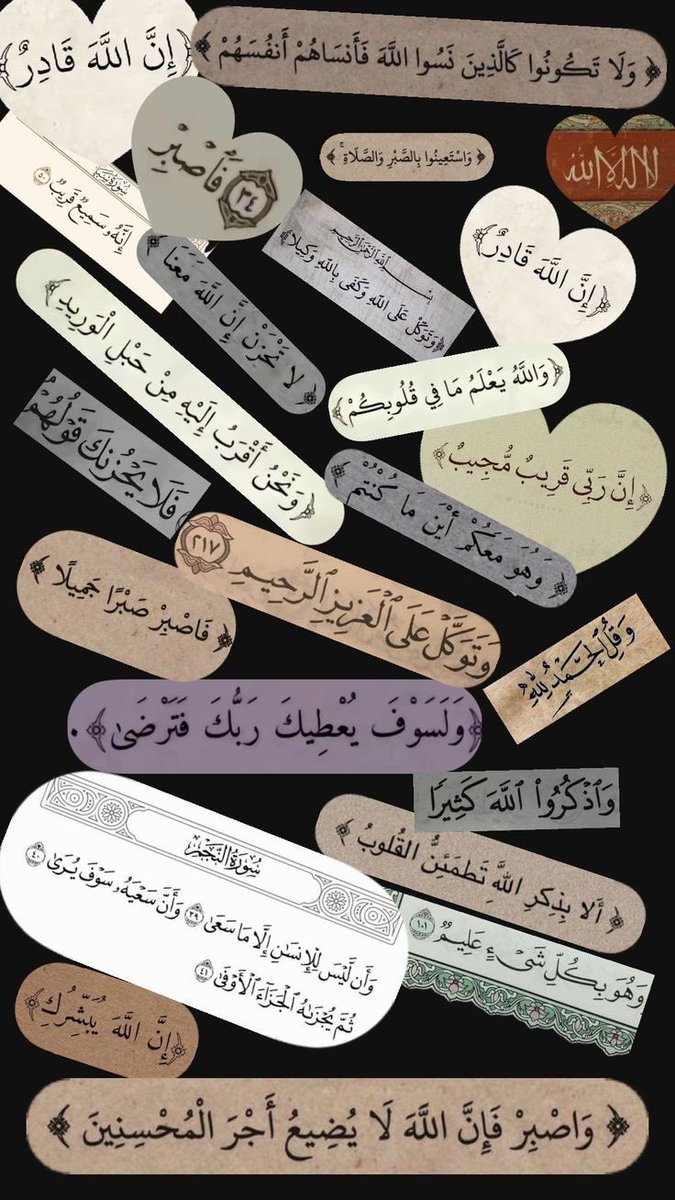 ﴿إِنَّ اللَّهَ قَادِرٌ﴾
﴿ وَلَا تَكُونُوا كَالَّذِينَ نَسُوا اللَّهَ فَأَنسَاهُمْ أَنفُسَهُمْ ﴾
فَاصْبِرْ ٣٤
﴿ وَاسْتَعِينُوا بِالصَّبْرِ وَالصَّلَاةِ ۚ ﴾
لا اله الا الله
إِنَّهُ سَمِيعٌ قَرِيبٌ ٥٠
لَا تَحْزَنْ إِنَّ اللَّهَ مَعَنَا ﴾
بِسْمِ اللَّهِ الرَّحْمَنِ الرَّحِيمِ
﴿وَتَوَكَّلْ عَلَى اللَّهِ وَكَفَى بِاللَّهِ وَكِيلًا﴾
﴿إِنَّ اللَّهَ قَادِرٌ﴾
﴿ وَنَحْنُ أَقْرَبُ إِلَيْهِ مِنْ حَبْلِ الْوَرِيدِ ﴾
﴿وَاللَّهُ يَعْلَمُ مَا فِي قُلُوبِكُمْ﴾
فَلَا يَحْزُنكَ قَوْلُهُمْ
﴿إِنَّ رَبِّي قَرِيبٌ مُّجِيبٌ﴾
﴿ وَهُوَ مَعَكُمْ أَيْنَ مَا كُنْتُمْ ﴾
وَتَوَكَّلْ عَلَى ٱلْعَزِيزِ ٱلرَّحِيمِ ٢١٧
﴿ فَاصْبِرْ صَبْرًا جَمِيلًا ﴾
وَقُلِ ٱلْحَمْدُ لِلَّهِ
﴿وَلَسَوْفَ يُعْطِيكَ رَبُّكَ فَتَرْضَىٰ﴾.
وَٱذْكُرُوا۟ ٱللَّهَ كَثِيرًا
﴿ أَلَا بِذِكْرِ اللَّهِ تَطْمَئِنُّ القُلُوبُ ﴾
سُورَةُ النَّجْمِ
وَأَن لَّيْسَ لِلْإِنسَٰنِ إِلَّا مَا سَعَىٰ ٣٩ وَأَنَّ سَعْيَهُۥ سَوْفَ يُرَىٰ ٤٠
ثُمَّ يُجْزَىٰهُ ٱلْجَزَآءَ ٱلْأَوْفَىٰ ٤١
وَهُوَ بِكُلِّ شَىْءٍ عَلِيمٌ ١٠١
﴿إِنَّ اللَّهَ يُبَشِّرُكِ﴾
﴿ وَاصْبِرْ فَإِنَّ اللَّهَ لَا يُضِيعُ أَجْرَ الْمُحْسِنِينَ ﴾